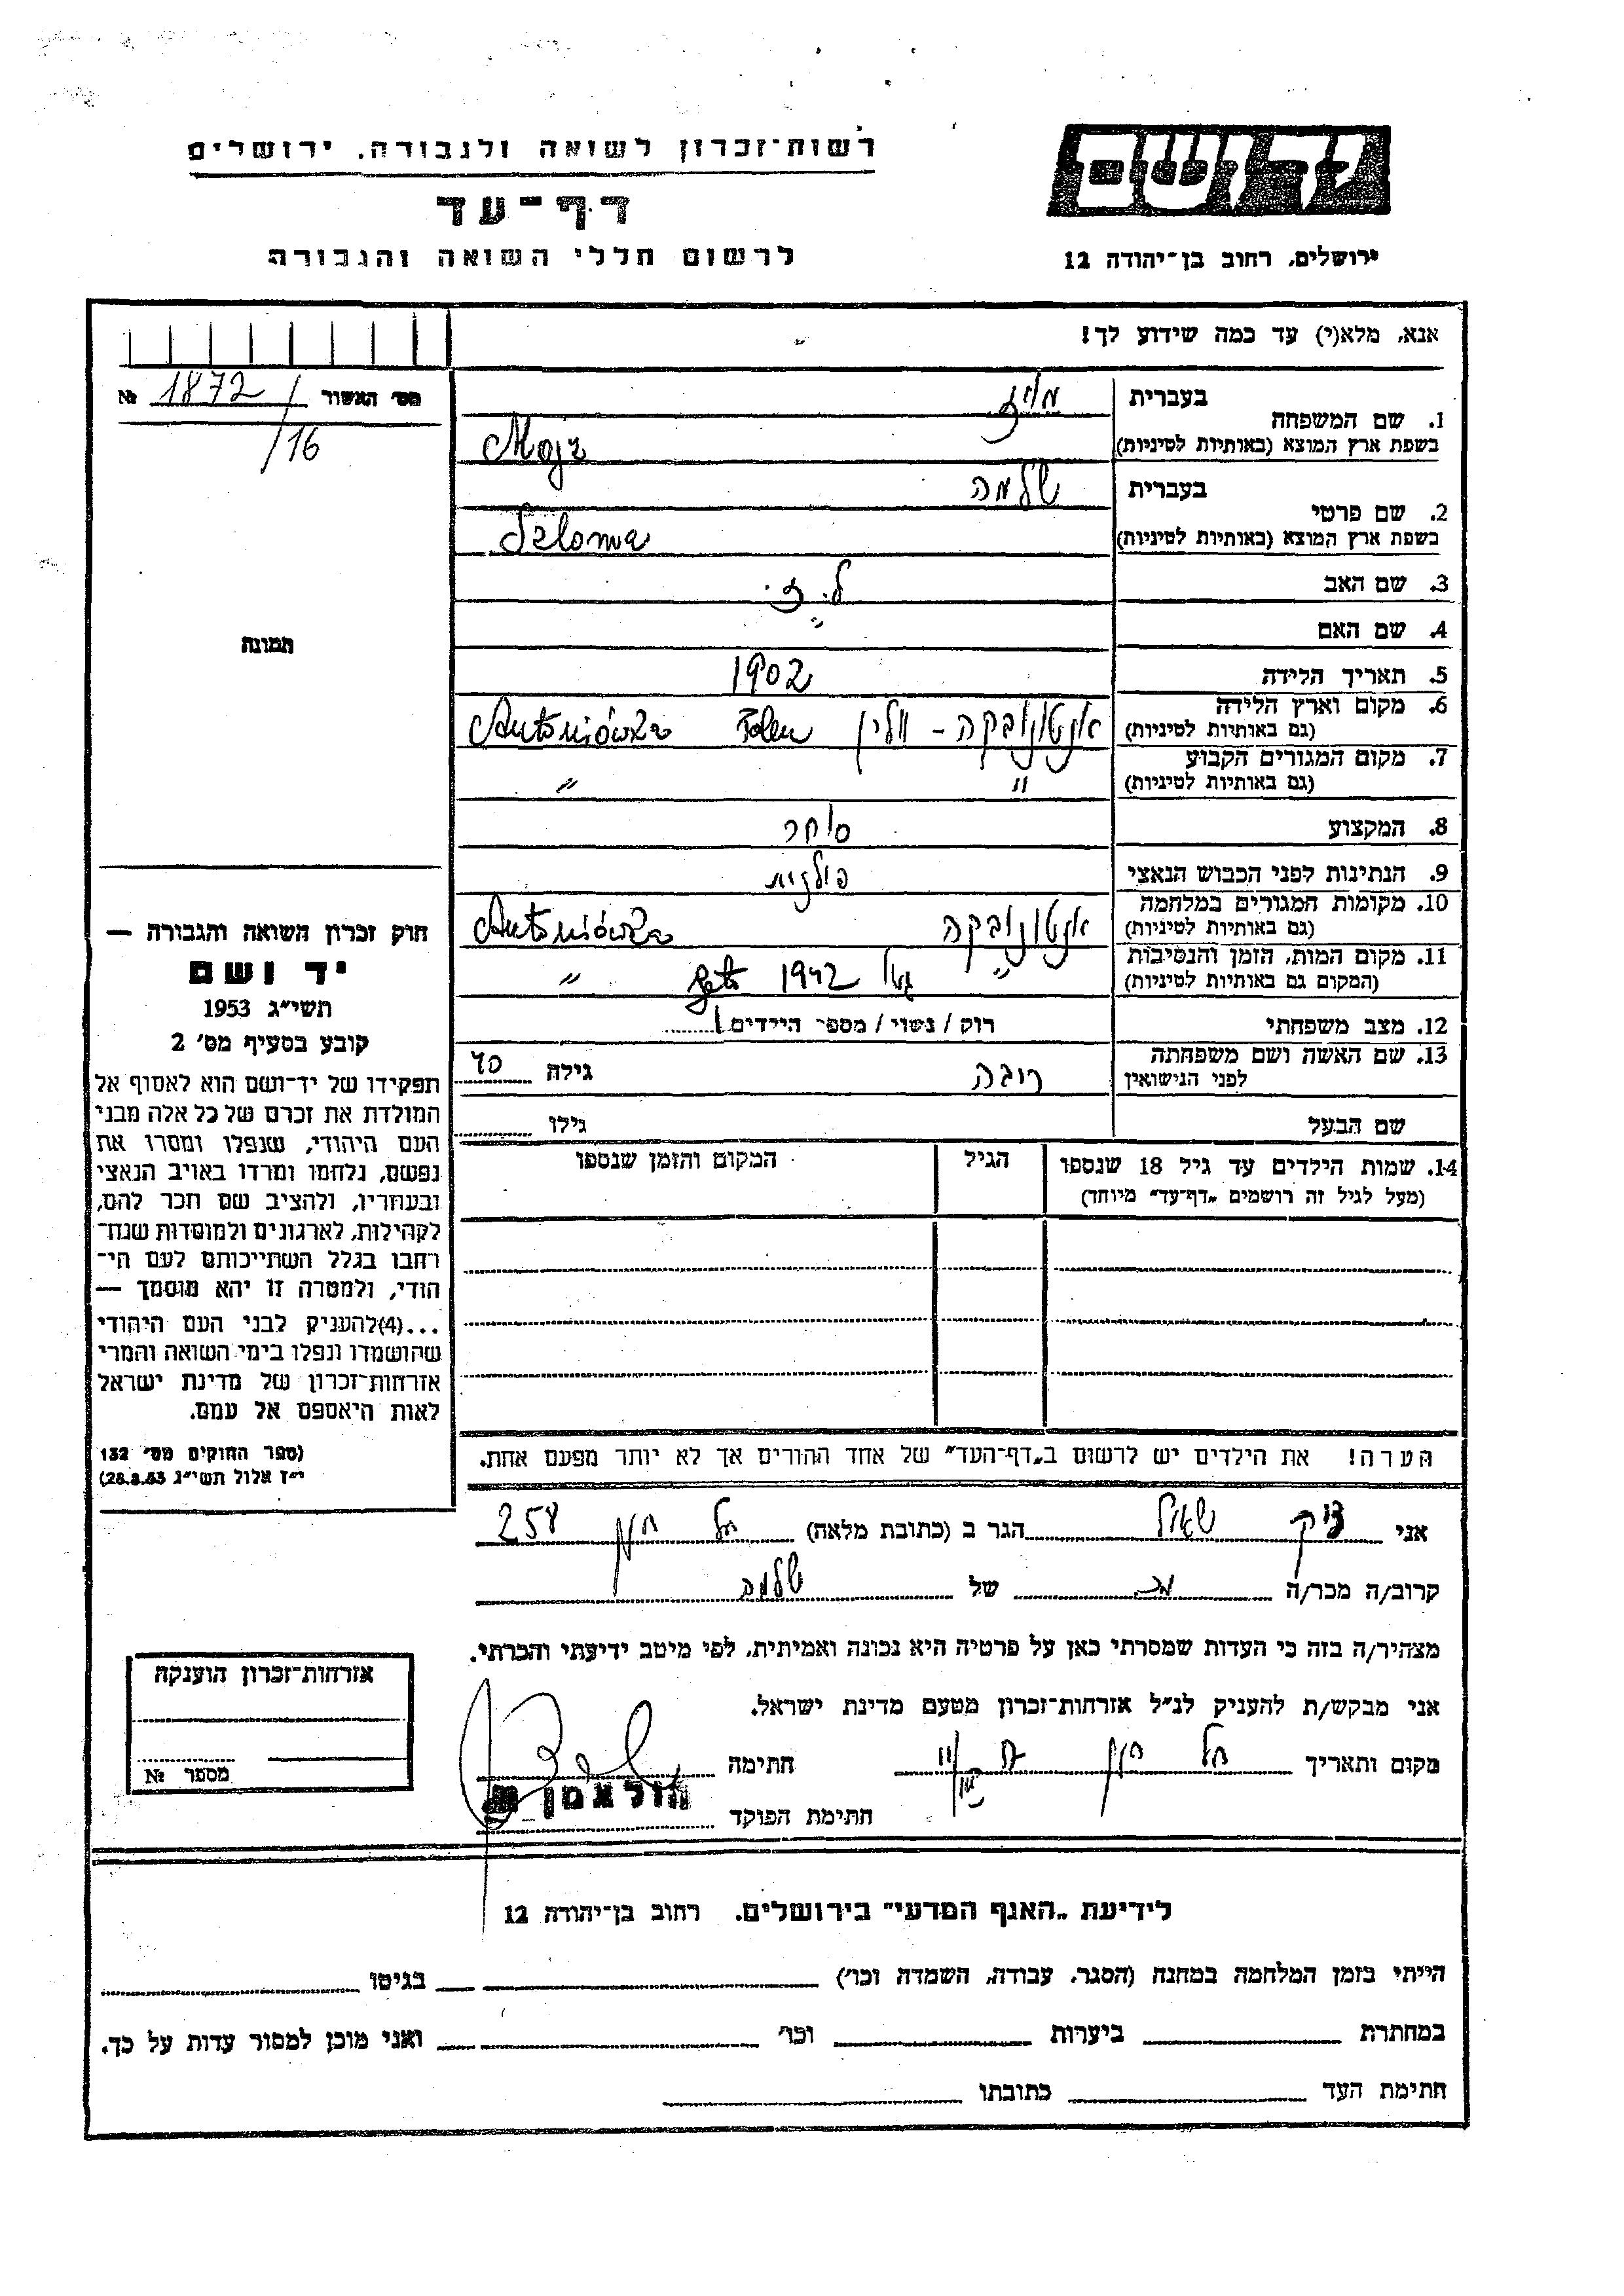 רשות־זכרון לשואה ולגבורה, ירושלים
דף־עד
לרשום חללי השואה והגבורה
יד ושם
ירושלים, רחוב בן־יהודה 12
אנא, מלא(י) עד כמה שידוע לך!
מס' האשור 1872 №
/16
תמונה
חוק זכרון השואה והגבורה —
יד ושם
תשי"ג 1953
קובע בסעיף מס' 2
תפקידו של יד־ושם הוא לאסוף אל
המולדת את זכרם של כל אלה מבני
העם היהודי, שנפלו ומסרו את
נפשם, נלחמו ומרדו באויב הנאצי
ובעוזריו, ולהציב שם וזכר להם,
לקהילות, לארגונים ולמוסדות שנח־
רבו בגלל השתייכותם לעם הי־
הודי, ולמטרה זו יהא מוסמך —
...(4) להעניק לבני העם היהודי
שהושמדו ונפלו בימי השואה והמרי
אזרחות־זכרון של מדינת ישראל
לאות היאספם אל עמם.
(ספר החוקים מס' 132
י"ז אלול תשי"ג 28.8.53)
1. שם המשפחה בעברית
בשפת ארץ המוצא (באותיות לטיניות) Mojz
2. שם פרטי בעברית שלמה
בשפת ארץ המוצא (באותיות לטיניות) Szloma
3. שם האב ל. י.
4. שם האם "
5. תאריך הלידה 1902
6. מקום וארץ הלידה (גם באותיות לטיניות) אנטונובקה - וולין Polen Antoniówka
7. מקום המגורים הקבוע (גם באותיות לטיניות) " "
8. המקצוע סוחר
9. הנתינות לפני הכבוש הנאצי פולנית
10. מקומות המגורים במלחמה (גם באותיות לטיניות) אנטונובקה Antoniówka
11. מקום המות, הזמן והנסיבות (המקום גם באותיות לטיניות) " 1942 geto "
12. מצב משפחתי רוק / נשוי / מספר הילדים 1
13. שם האשה ושם משפחתה לפני הנישואין גילה 40
שם הבעל גילו
14. שמות הילדים עד גיל 18 שנספו הגיל המקום והזמן שנספו
(מעל לגיל זה רושמים "דף־עד" מיוחד)
הערה! את הילדים יש לרשום ב"דף־העד" של אחד ההורים אך לא יותר מפעם אחת.
אני שאול הגר ב (כתובת מלאה) 258
קרוב/ה מכר/ה של שלמה
מצהיר/ה בזה כי העדות שמסרתי כאן על פרטיה היא נכונה ואמיתית, לפי מיטב ידיעתי והכרתי.
אני מבקש/ת להעניק לנ"ל אזרחות־זכרון מטעם מדינת ישראל.
מקום ותאריך חתימה
הולצמן
חתימת הפוקד
אזרחות־זכרון הוענקה
מספר №
לידיעת "האגף המדעי" בירושלים, רחוב בן־יהודה 12
הייתי בזמן המלחמה במחנה (הסגר, עבודה, השמדה וכו') בגיטו
במחתרת ביערות וכו' ואני מוכן למסור עדות על כך.
חתימת העד כתובתו